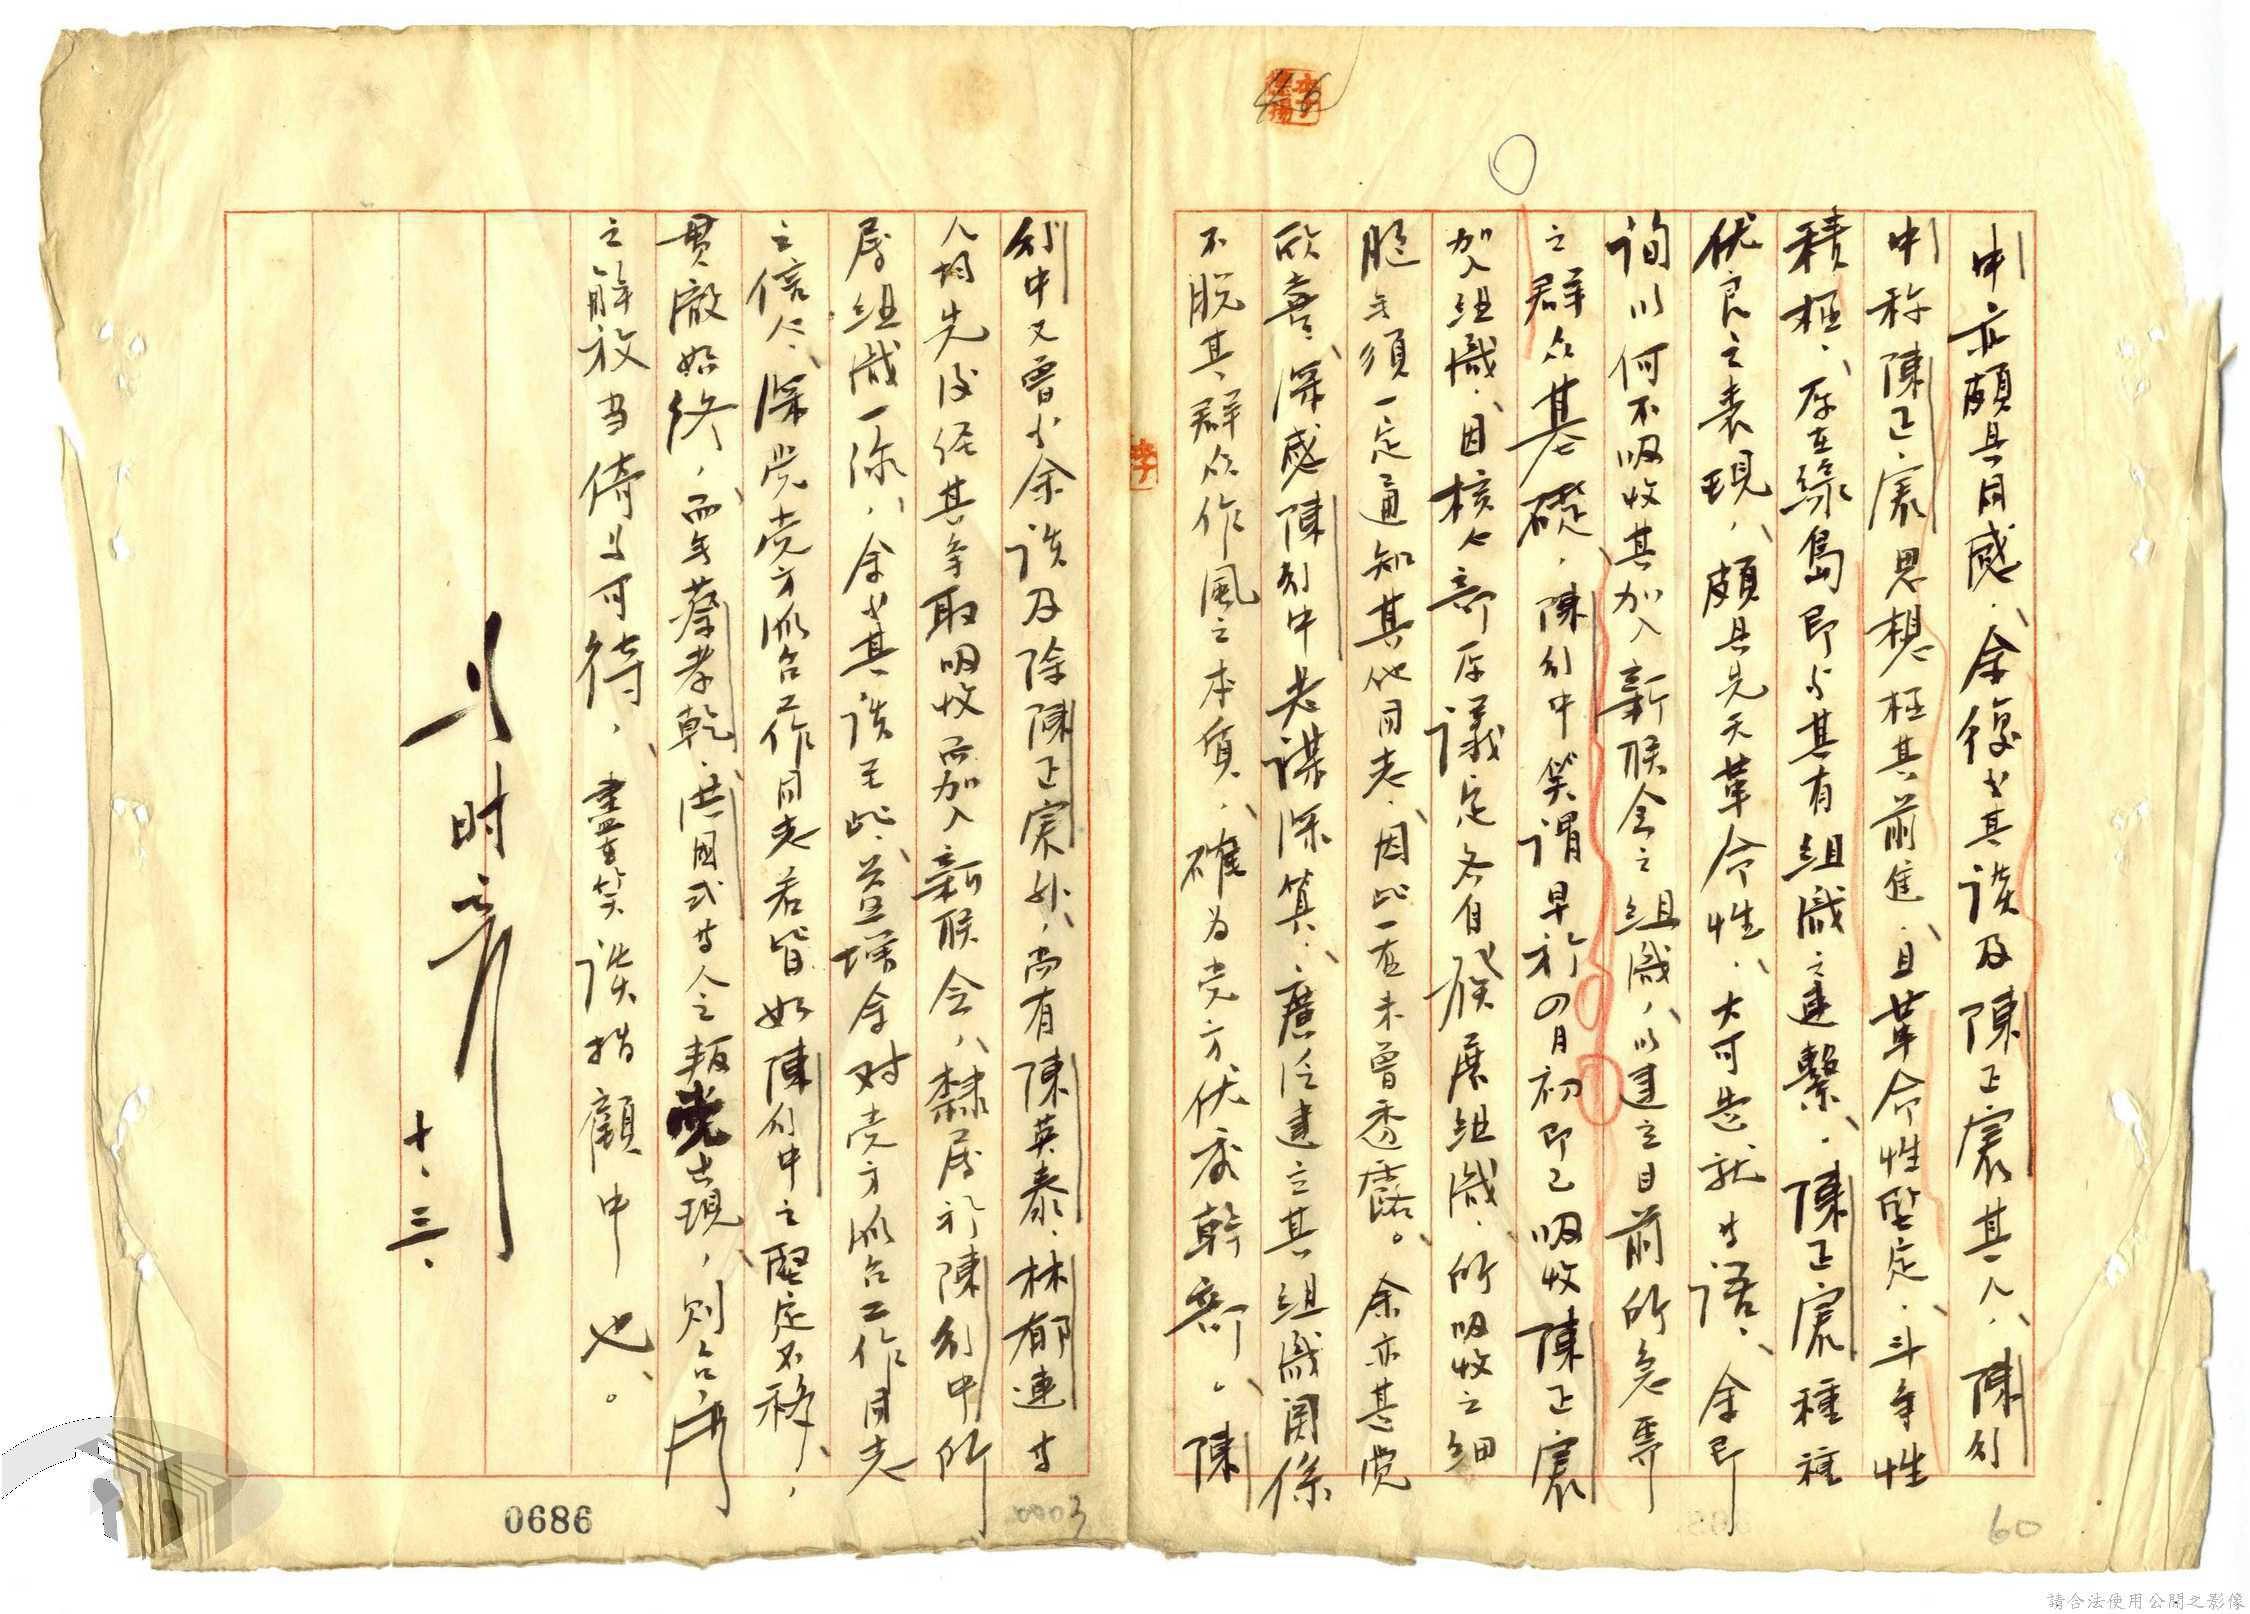 中亦頗具同感、余復与其談及陳正宸其人、陳創
中称陳正宸思想极其前進、且革命性堅定、斗争性
積极、存在綠島即与其有組織之連繫、陳正宸種種
优良之表現、頗具先天革命性、大可造就等語、余即
詢以何不吸收其加入新联会之組織、以建立目前所急需
之群众基礎、陳創中笑謂早於四月初即已吸收陳正宸
加入組織、因核心部存議定各自發展組織、所吸收之細
胞无須一定通知其他同志、因此一直未曾透露。余亦甚覺
欣喜、深感陳創中老謀深算、廣泛建立其組織関係
不脱其群众作風之本質、確为党方优秀幹部。陳
創中又曾与余談及除陳正宸外、尚有陳英泰、林郁連等
人均先后経其争取吸收而加入新联会、隸屬於陳創中所
屬組織一環、余与其談至此、益增余对党方派台工作同志
之信心、深覺党方派台工作同志若皆如陳創中之堅定不移、
貫徹始終、而无蔡孝乾、洪国式等人之叛党出現、則台湾
之解放当倚馬可待、尽在笑談指顧中也。
時彦
十、三、
46
李
0686
0003
60
請合法使用公開之影像